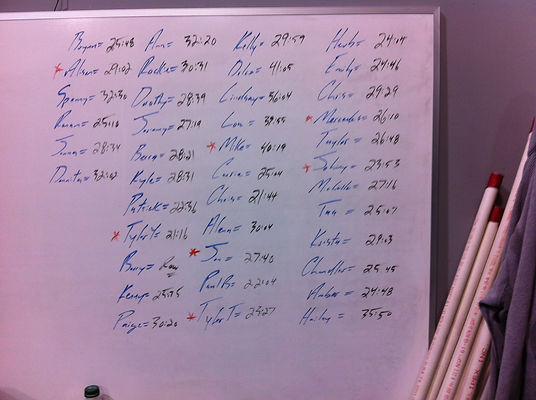 Bryan = 25:48
* Alison = 29:02
Spanny = 32:30
Ronan = 25:10
Jonna = 28:34
Danita = 32:02
Ann = 32:20
Rockie = 30:31
Dorothy = 28:39
Jeremy = 27:19
Berg = 28:21
Kyle = 28:31
Patrick = 22:36
* Tyler Y = 21:16
Barry = Row
Kenny = 25:15
Paige = 30:20
Kelly = 29:59
= 41:05
Lindsay = 36:04
Lou = 38:55
* Mike = 40:19
Carrie = 25:04
Chris = 21:44
Alean = 30:04
* Jon = 27:40
Paul B = 22:04
* Tyler T = 23:27
Herb = 24:04
Emily = 24:46
Chris = 29:29
* Mercedes = 26:10
Taylor = 26:48
* Johnny = 23:53
Michelle = 27:16
= 25:07
Krista = 29:03
Chandler = 25:45
Amber = 24:48
Hailey = 35:50